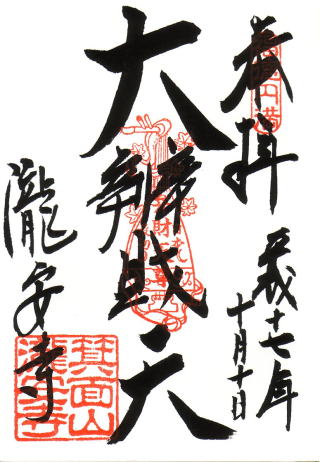 奉拝
平成十七年
十月十日
大辨財天
瀧安寺
箕面山
瀧安寺